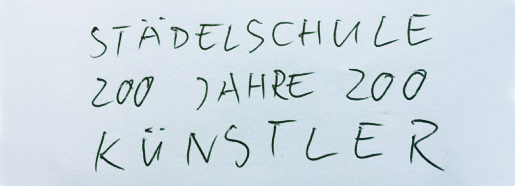 STÄDELSCHULE
200 JAHRE 200
KÜNSTLER